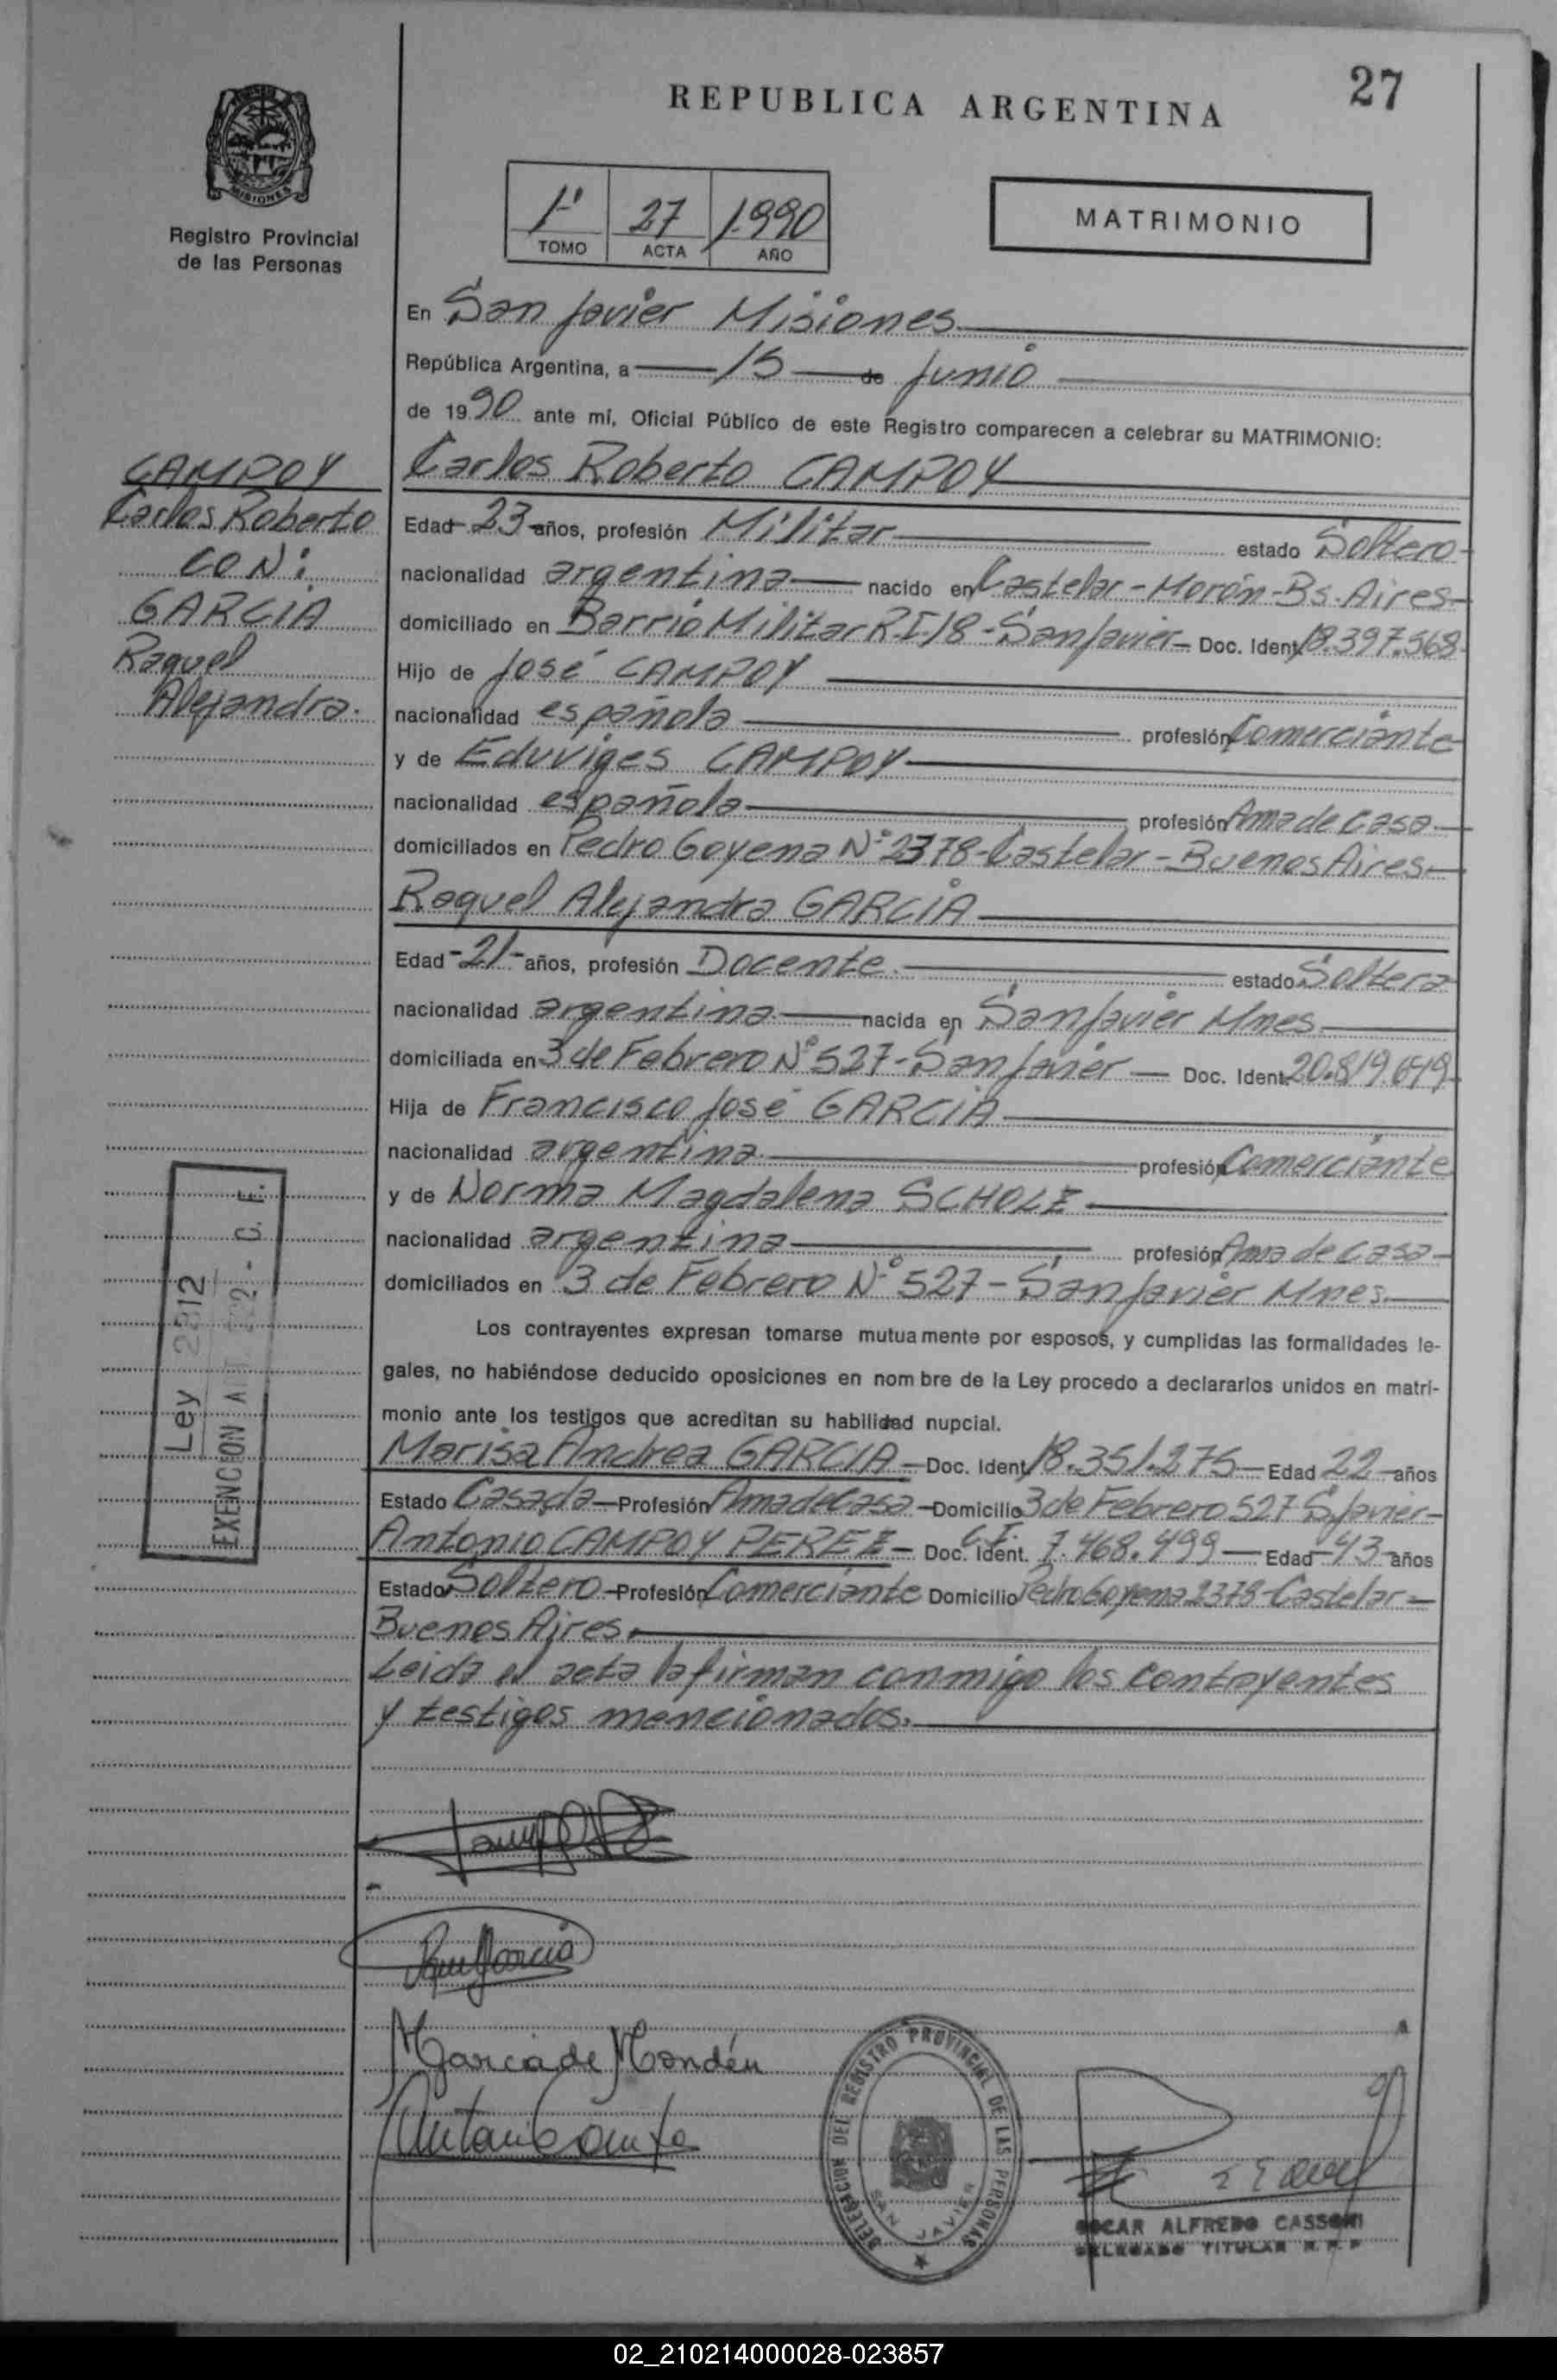 27
REPUBLICA ARGENTINA
MISIONES
Registro Provincial
de las Personas
1º 27 1990
TOMO ACTA AÑO
MATRIMONIO
En San Javier Misiones
República Argentina, a 15 de Junio
de 1990 ante mí, Oficial Público de este Registro comparecen a celebrar su MATRIMONIO:
CAMPOY
Carlos Roberto
CON:
GARCIA
Raquel
Alejandra.
Carlos Roberto CAMPOY
Edad 23 años, profesión Militar estado Soltero
nacionalidad argentina nacido en Castelar - Morón - Bs. Aires
domiciliado en Barrio Militar RI 18 - San Javier - Doc. Ident. 18.397.568
Hijo de José CAMPOY
nacionalidad española profesión Comerciante
y de Eduviges CAMPOY
nacionalidad española profesión Ama de casa
domiciliados en Pedro Goyena Nº 2378 - Castelar - Buenos Aires
Raquel Alejandra GARCIA
Edad 21 años, profesión Docente. estado Soltera
nacionalidad argentina nacida en San Javier Mnes
domiciliada en 3 de Febrero Nº 527 - San Javier Doc. Ident. 20.819.649
Hija de Francisco José GARCIA
nacionalidad argentina profesión Comerciante
y de Norma Magdalena SCHOLZ
nacionalidad argentina profesión Ama de casa
domiciliados en 3 de Febrero Nº 527 - San Javier Mnes.
Los contrayentes expresan tomarse mutuamente por esposos, y cumplidas las formalidades le-
gales, no habiéndose deducido oposiciones en nombre de la Ley procedo a declararlos unidos en matri-
monio ante los testigos que acreditan su habilidad nupcial.
Marisa Andrea GARCIA Doc. Ident. 18.351.275 Edad 22 años
Estado Casada Profesión Ama de casa Domicilio 3 de Febrero 527 S. Javier
Antonio CAMPOY PEREZ Doc. Ident. C.I. 7.468.499 Edad 43 años
Estado Soltero Profesión Comerciante Domicilio Pedro Goyena 2378 - Castelar -
Buenos Aires.
Leida el acta la firman conmigo los contrayentes
y testigos mencionados.
Ley 2812
EXENCION ART. 22 - C. F.
MGarcia de Mondén
DELEGACION DEL REGISTRO PROVINCIAL DE LAS PERSONAS
SAN JAVIER
OSCAR ALFREDO CASSONI
DELEGADO TITULAR R.P.P
02_210214000028-023857